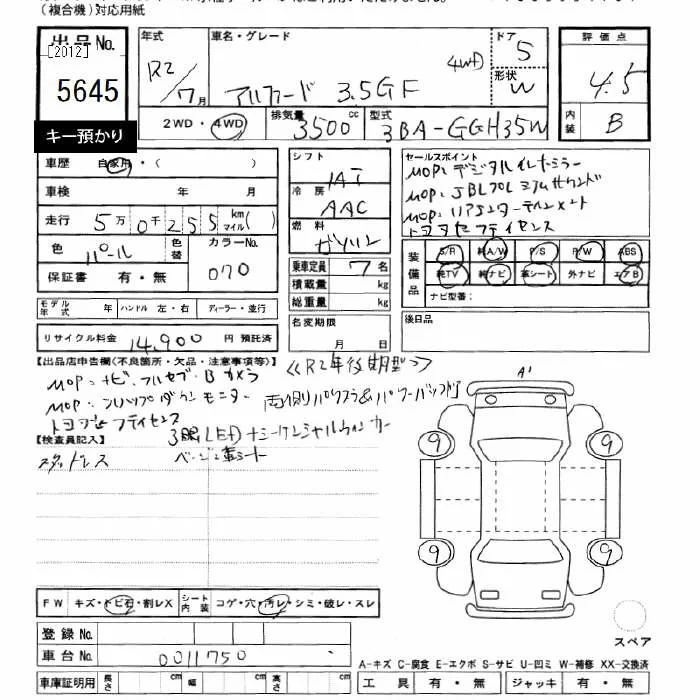 (複合機)対応用紙
出品No.
[2012]
5645
キー預かり
年式 R2/7月
車名・グレード アルファード 3.5GF 4WD
ドア 5
形状 W
評価点 4.5
内装 B
2WD・4WD
排気量 3500 cc
型式 3BA-GGH35W
車歴 自家用・( )
車検 年 月
走行 5万0千255 km マイル( )
色 パール 色替 カラーNo. 070
保証書 有・無
シフト IAT
冷房 AAC
燃料 ガソリン
乗車定員 7名
積載量 kg
総重量 kg
セールスポイント
MOP:デジタルインナーミラー
MOP:JBLプレミアムサウンド
MOP:リアエンターテインメント
トヨタセーフティセンス
装備品 S/R 純A/W P/S P/W ABS
純TV 純ナビ 革シート 外ナビ エアB
ナビ型番:
モデル年式 年 ハンドル 左・右 ディーラー・並行
リサイクル料金 14,900 円 預託済
名変期限 月 日
後日品
【出品店申告欄(不良箇所・欠品・注意事項等)】
<<R2年後期型>>
MOP:ナビ.フルセグ.Bカメラ
MOP:フリップダウンモニター 両側パワスラ&パワーバックドア
トヨタセーフティセンス
3眼LED+シーケンシャルウィンカー
ベージュ革シート
【検査員記入】
スタッドレス
A'
9 9
9 9
FW キズ・トビ石・割レX シート内装 コゲ・穴・汚レ・シミ・破レ・スレ
登録No.
車台No. 0011750
スペア
A-キズ C-腐食 E-エクボ S-サビ U-凹ミ W-補修 XX-交換済
車庫証明用 長さ cm 幅 cm 高さ cm
工具 有・無 ジャッキ 有・無